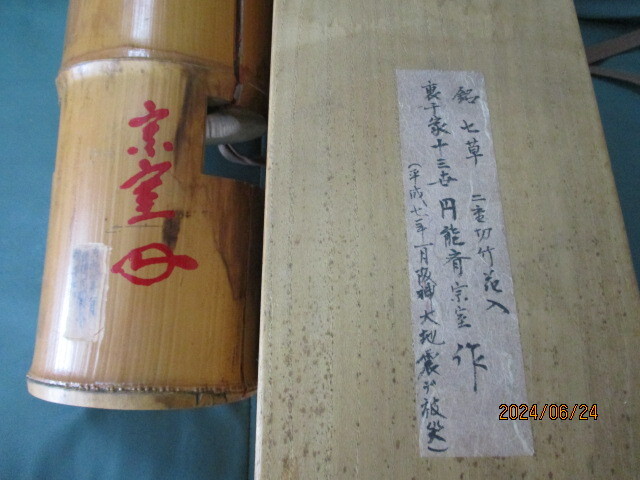 宗室
銘 七草 二重切竹花入
裏千家十三世 円能斎宗室 作
(平成七年一月阪神大地震ニテ被災)
2024/06/24